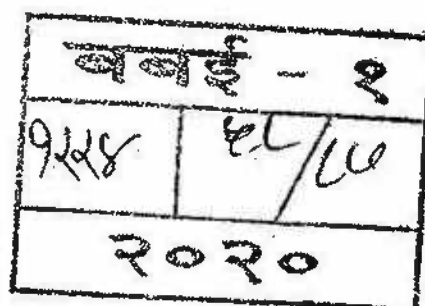 बबई - १
१२२४ ५८/८७
२०२०